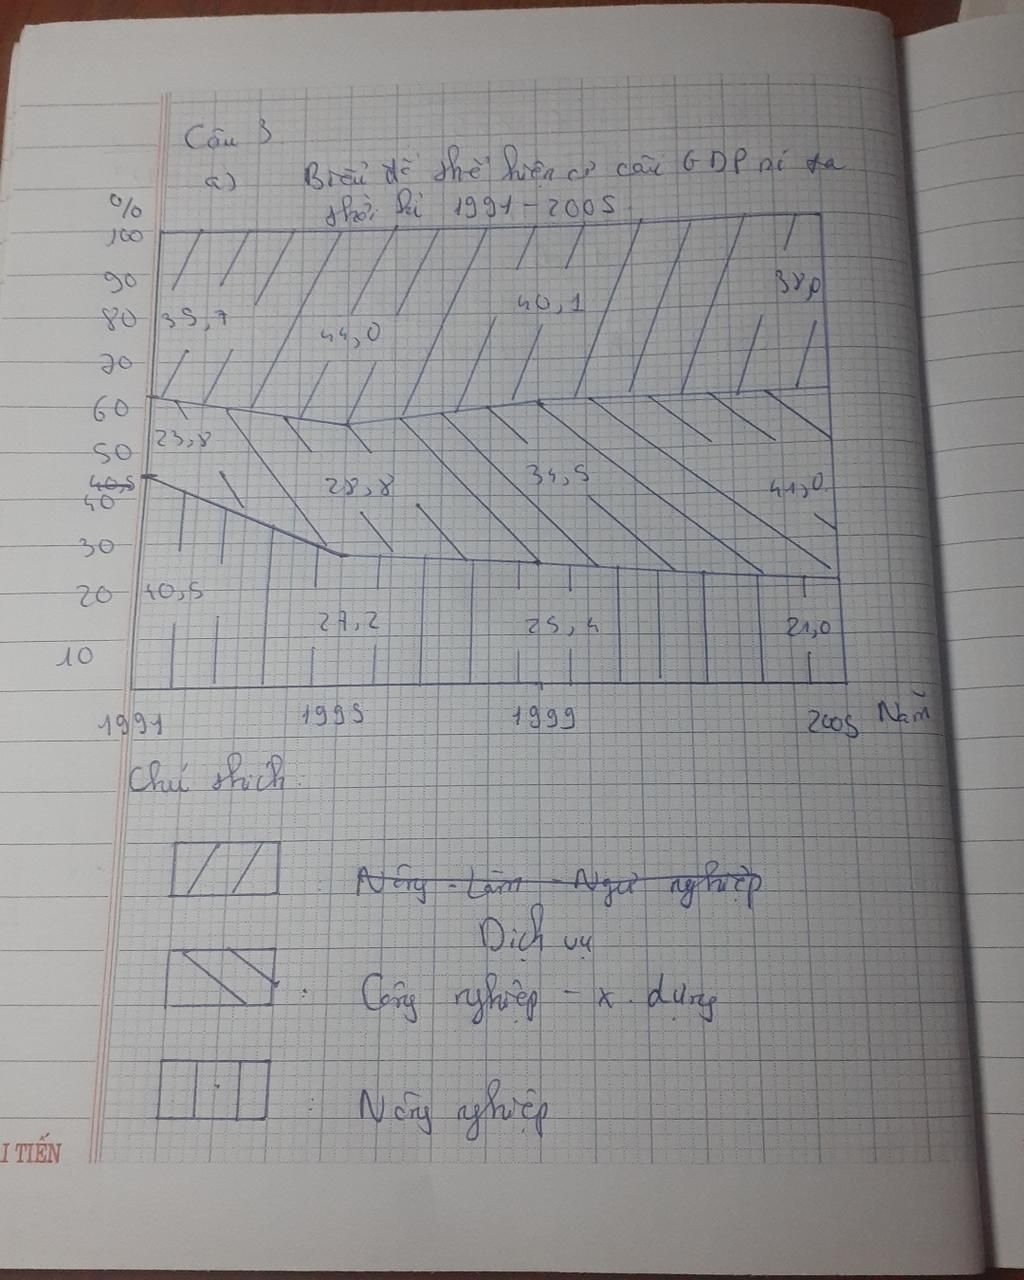 Câu 3
a) Biểu đồ thể hiện cơ cấu GDP nc ta
thời kì 1991-2005
%
100
90
80
70
60
50
40,5
40
30
20
10
35,7
44,0
40,1
38,0
23,8
28,8
34,5
41,0
40,5
27,2
25,4
21,0
1991 1995 1999 2005 Năm
Chú thích:
: Nông - Lâm - Ngư nghiệp
Dịch vụ
: Công nghiệp - x. dựng
: Nông nghiệp
I TIẾN